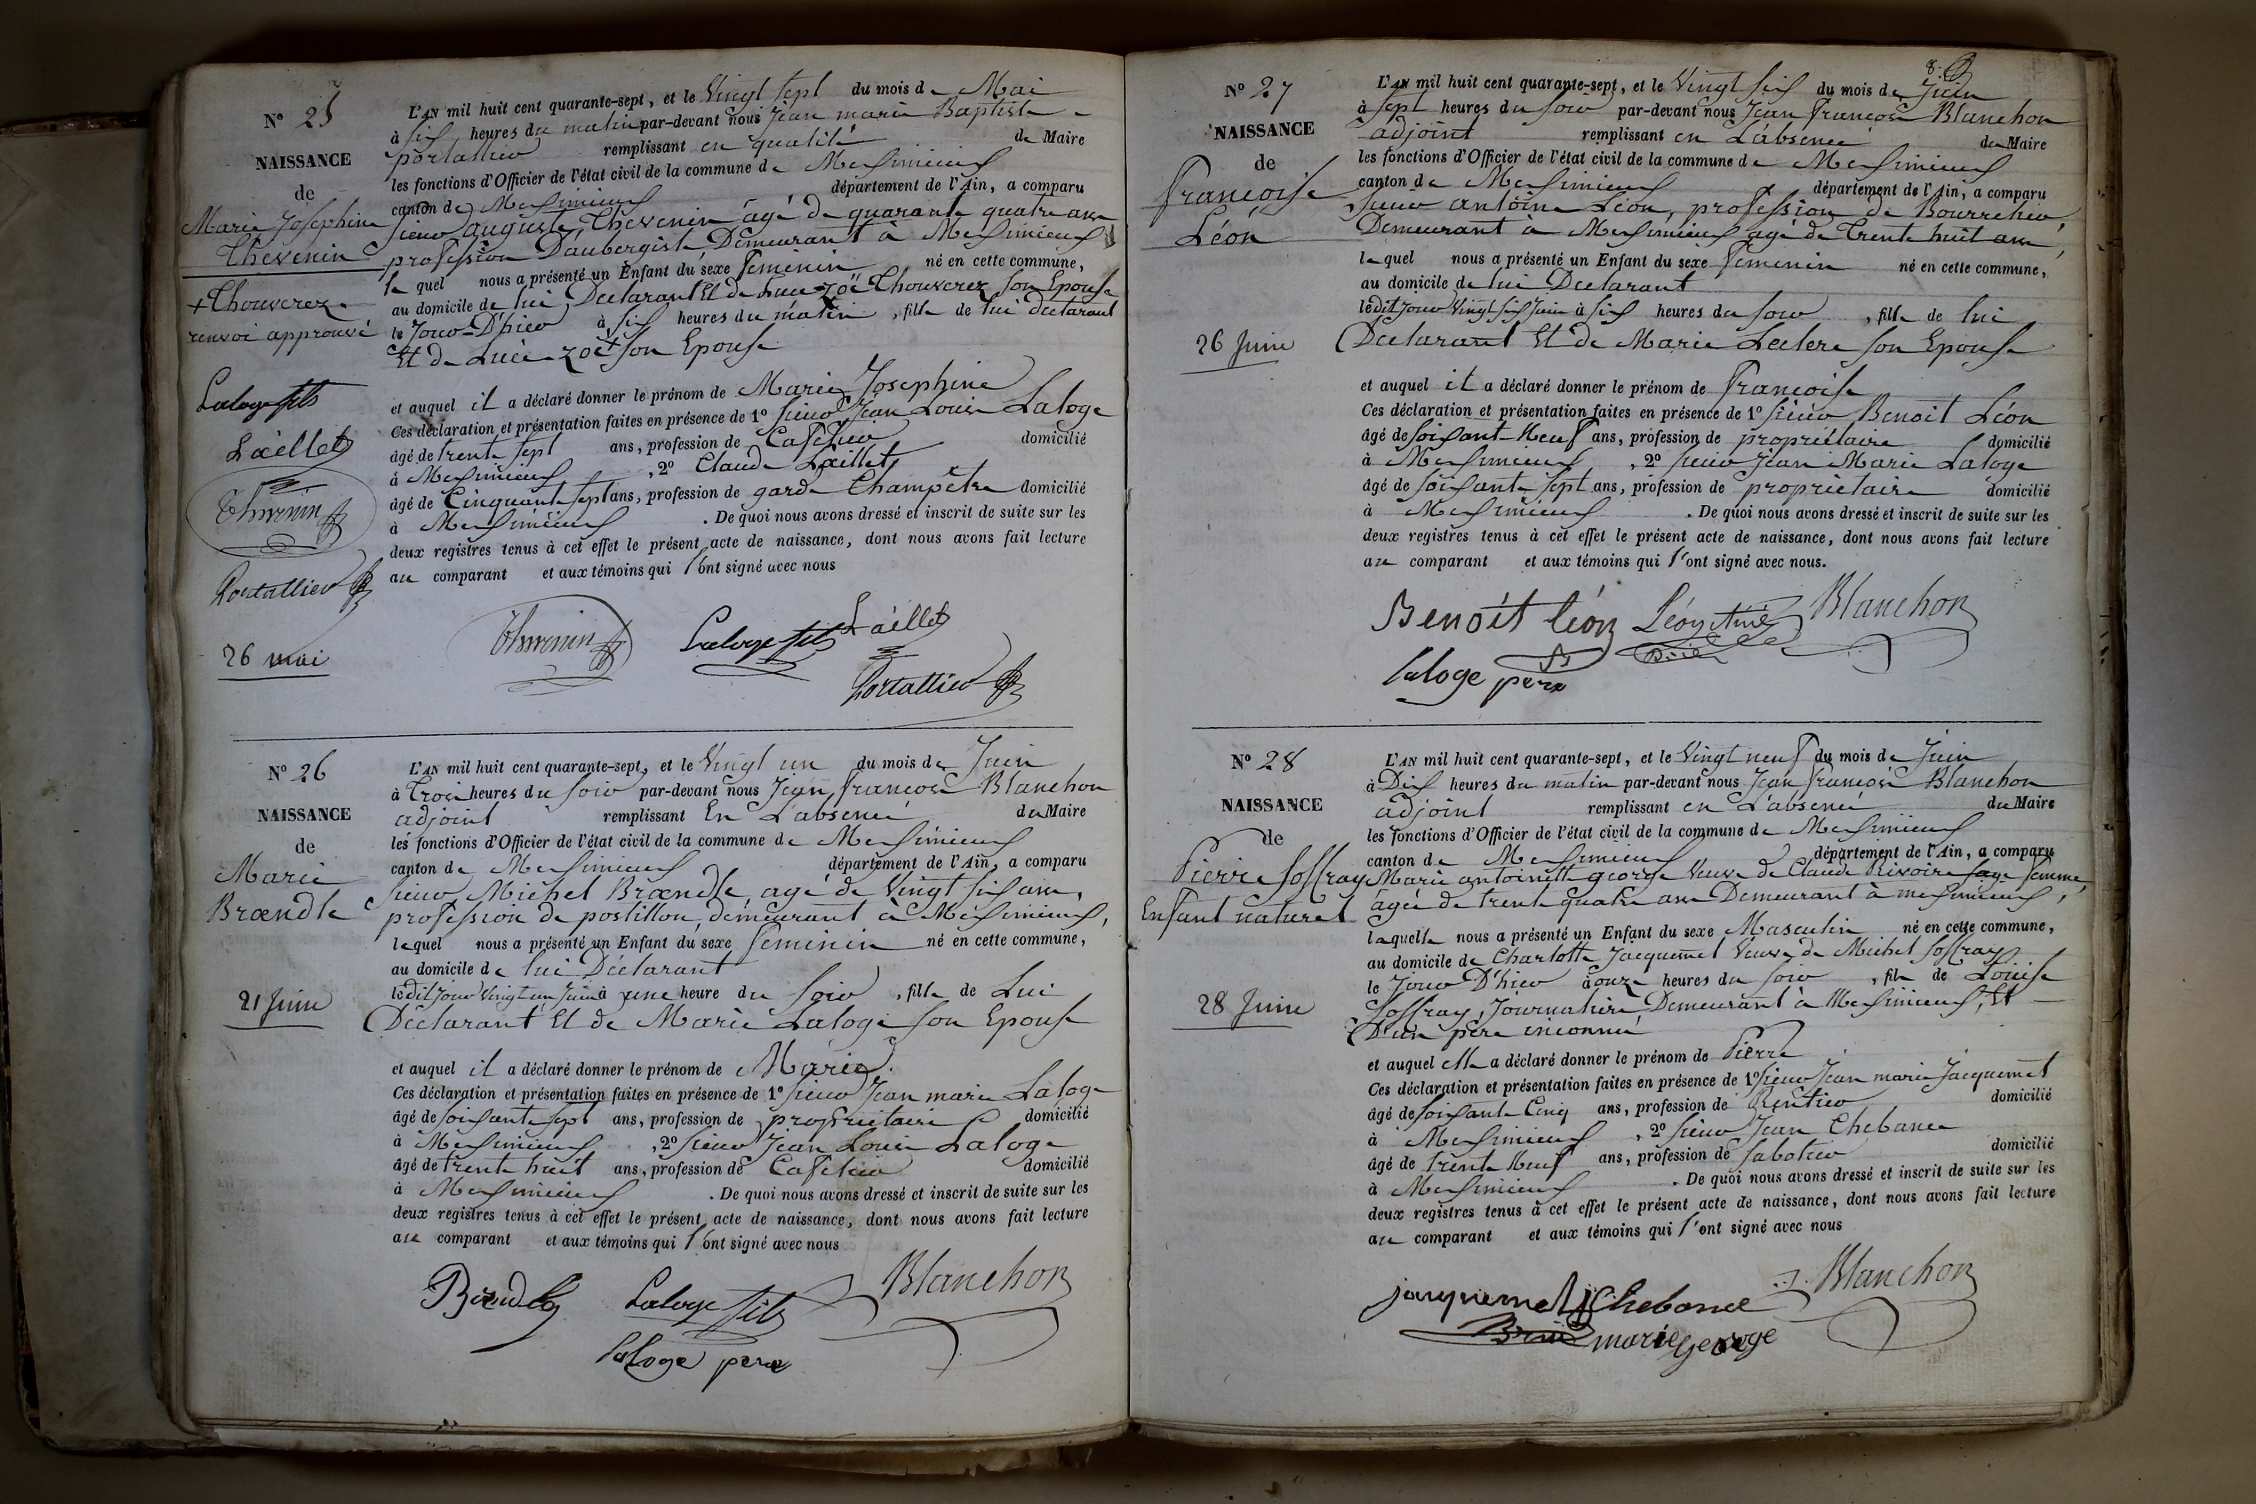 N° 25
NAISSANCE
de
Marie Josephine
Thevenin
+ Thouverez
renvoi approuvé
Laloge fils
Laillet
Thevenin
Portallier
26 mai
L'AN mil huit cent quarante-sept, et le Vingt sept du mois de Mai
à six heures du matin par-devant nous Jean marie Baptiste
portallier remplissant en qualité de Maire
les fonctions d'Officier de l'état civil de la commune de Meximieux
canton de Meximieux département de l'Ain, a comparu
sieur auguste Thevenin âgé de quarante quatre ans
profession D'aubergiste Demeurant à Meximieux
le quel nous a présenté un Enfant du sexe feminin né en cette commune,
au domicile de lui Declarant Et de Lucie zoé Thouverez son Epouse
le Jour D'hier à six heures du matin, fille de lui declarant
Et de Lucie zoé + son Epouse
et auquel il a déclaré donner le prénom de Marie Josephine
Ces déclaration et présentation faites en présence de 1° sieur Jean Louis Laloge
âgé de trente sept ans, profession de Cafetier domicilié
à Meximieux, 2° Claude Laillet
âgé de Cinquante sept ans, profession de garde Champêtre domicilié
à Meximieux. De quoi nous avons dressé et inscrit de suite sur les
deux registres tenus à cet effet le présent acte de naissance, dont nous avons fait lecture
au comparant et aux témoins qui l'ont signé avec nous
Thevenin Laloge fils Laillet
Portallier
N° 26
NAISSANCE
de
Marie
Brændle
21 Juin
L'AN mil huit cent quarante-sept, et le Vingt un du mois de Juin
à Trois heures du soir par-devant nous Jean francois Blanchon
adjoint remplissant En L'absence du Maire
les fonctions d'Officier de l'état civil de la commune de Meximieux
canton de Meximieux département de l'Ain, a comparu
sieur Michel Brændle agé de Vingt six ans,
profession de postillon, demeurant à Meximieux,
lequel nous a présenté un Enfant du sexe feminin né en cette commune,
au domicile de lui Déclarant
ledit jour Vingt un Juin à une heure du soir, fille de Lui
Déclarant Et de Marie Laloge son Epouse
et auquel il a déclaré donner le prénom de Marie
Ces déclaration et présentation faites en présence de 1° sieur Jean marie Laloge
âgé de soixante sept ans, profession de propriétaire domicilié
à Meximieux, 2° sieur Jean Louis Laloge
âgé de trente huit ans, profession de Cafetier domicilié
à Meximieux. De quoi nous avons dressé et inscrit de suite sur les
deux registres tenus à cet effet le présent acte de naissance, dont nous avons fait lecture
au comparant et aux témoins qui l'ont signé avec nous
Laloge fils Blanchon
laloge pere
8.
N° 27
NAISSANCE
de
francoise
Léon
26 Juin
L'AN mil huit cent quarante-sept, et le Vingt six du mois de Juin
à sept heures du soir par-devant nous Jean francois Blanchon
adjoint remplissant en L'absence du Maire
les fonctions d'Officier de l'état civil de la commune de Meximieux
canton de Meximieux département de l'Ain, a comparu
sieur antoine Léon, profession de Bourrelier
Demeurant à Meximieux agé de Trente huit ans,
lequel nous a présenté un Enfant du sexe femenin né en cette commune,
au domicile de lui Declarant
ledit jour Vingt six Juin à six heures du soir, fille de lui
Declarant Et de Marie Leclerc son Epouse
et auquel il a déclaré donner le prénom de francoise
Ces déclaration et présentation faites en présence de 1° sieur Benoit Léon
âgé de soixante Neuf ans, profession de propriétaire domicilié
à Meximieux, 2° sieur Jean Marie Laloge
âgé de soixante sept ans, profession de propriétaire domicilié
à Meximieux. De quoi nous avons dressé et inscrit de suite sur les
deux registres tenus à cet effet le présent acte de naissance, dont nous avons fait lecture
au comparant et aux témoins qui l'ont signé avec nous.
Benoit léon Léon Blanchon
laloge pere
N° 28
NAISSANCE
de
Pierre Soffray
Enfant naturel
28 Juin
L'AN mil huit cent quarante-sept, et le Vingt neuf du mois de Juin
à Dix heures du matin par-devant nous Jean francois Blanchon
adjoint remplissant en L'absence du Maire
les fonctions d'Officier de l'état civil de la commune de Meximieux
canton de Meximieux département de l'Ain, a comparu
Marie antoinette george Veuve de Claude Rivoire sage femme,
agée de trente quatre ans Demeurant à meximieux,
laquelle nous a présenté un Enfant du sexe Masculin né en cette commune,
au domicile de Charlotte Jacquemet Veuve de Michel Soffray
le Jour D'hier à onze heures du soir, fils de Louise
Soffray, Journalière Demeurant à Meximieux, Et
D'un père inconnu
et auquel elle a déclaré donner le prénom de Pierre
Ces déclaration et présentation faites en présence de 1° sieur Jean marie Jacquemet
âgé de soixante Cinq ans, profession de Rentier domicilié
à Meximieux, 2° sieur Jean Chebance
âgé de trente Neuf ans, profession de sabotier domicilié
à Meximieux. De quoi nous avons dressé et inscrit de suite sur les
deux registres tenus à cet effet le présent acte de naissance, dont nous avons fait lecture
au comparant et aux témoins qui l'ont signé avec nous
jacquemet J Chebance Blanchon
marie george